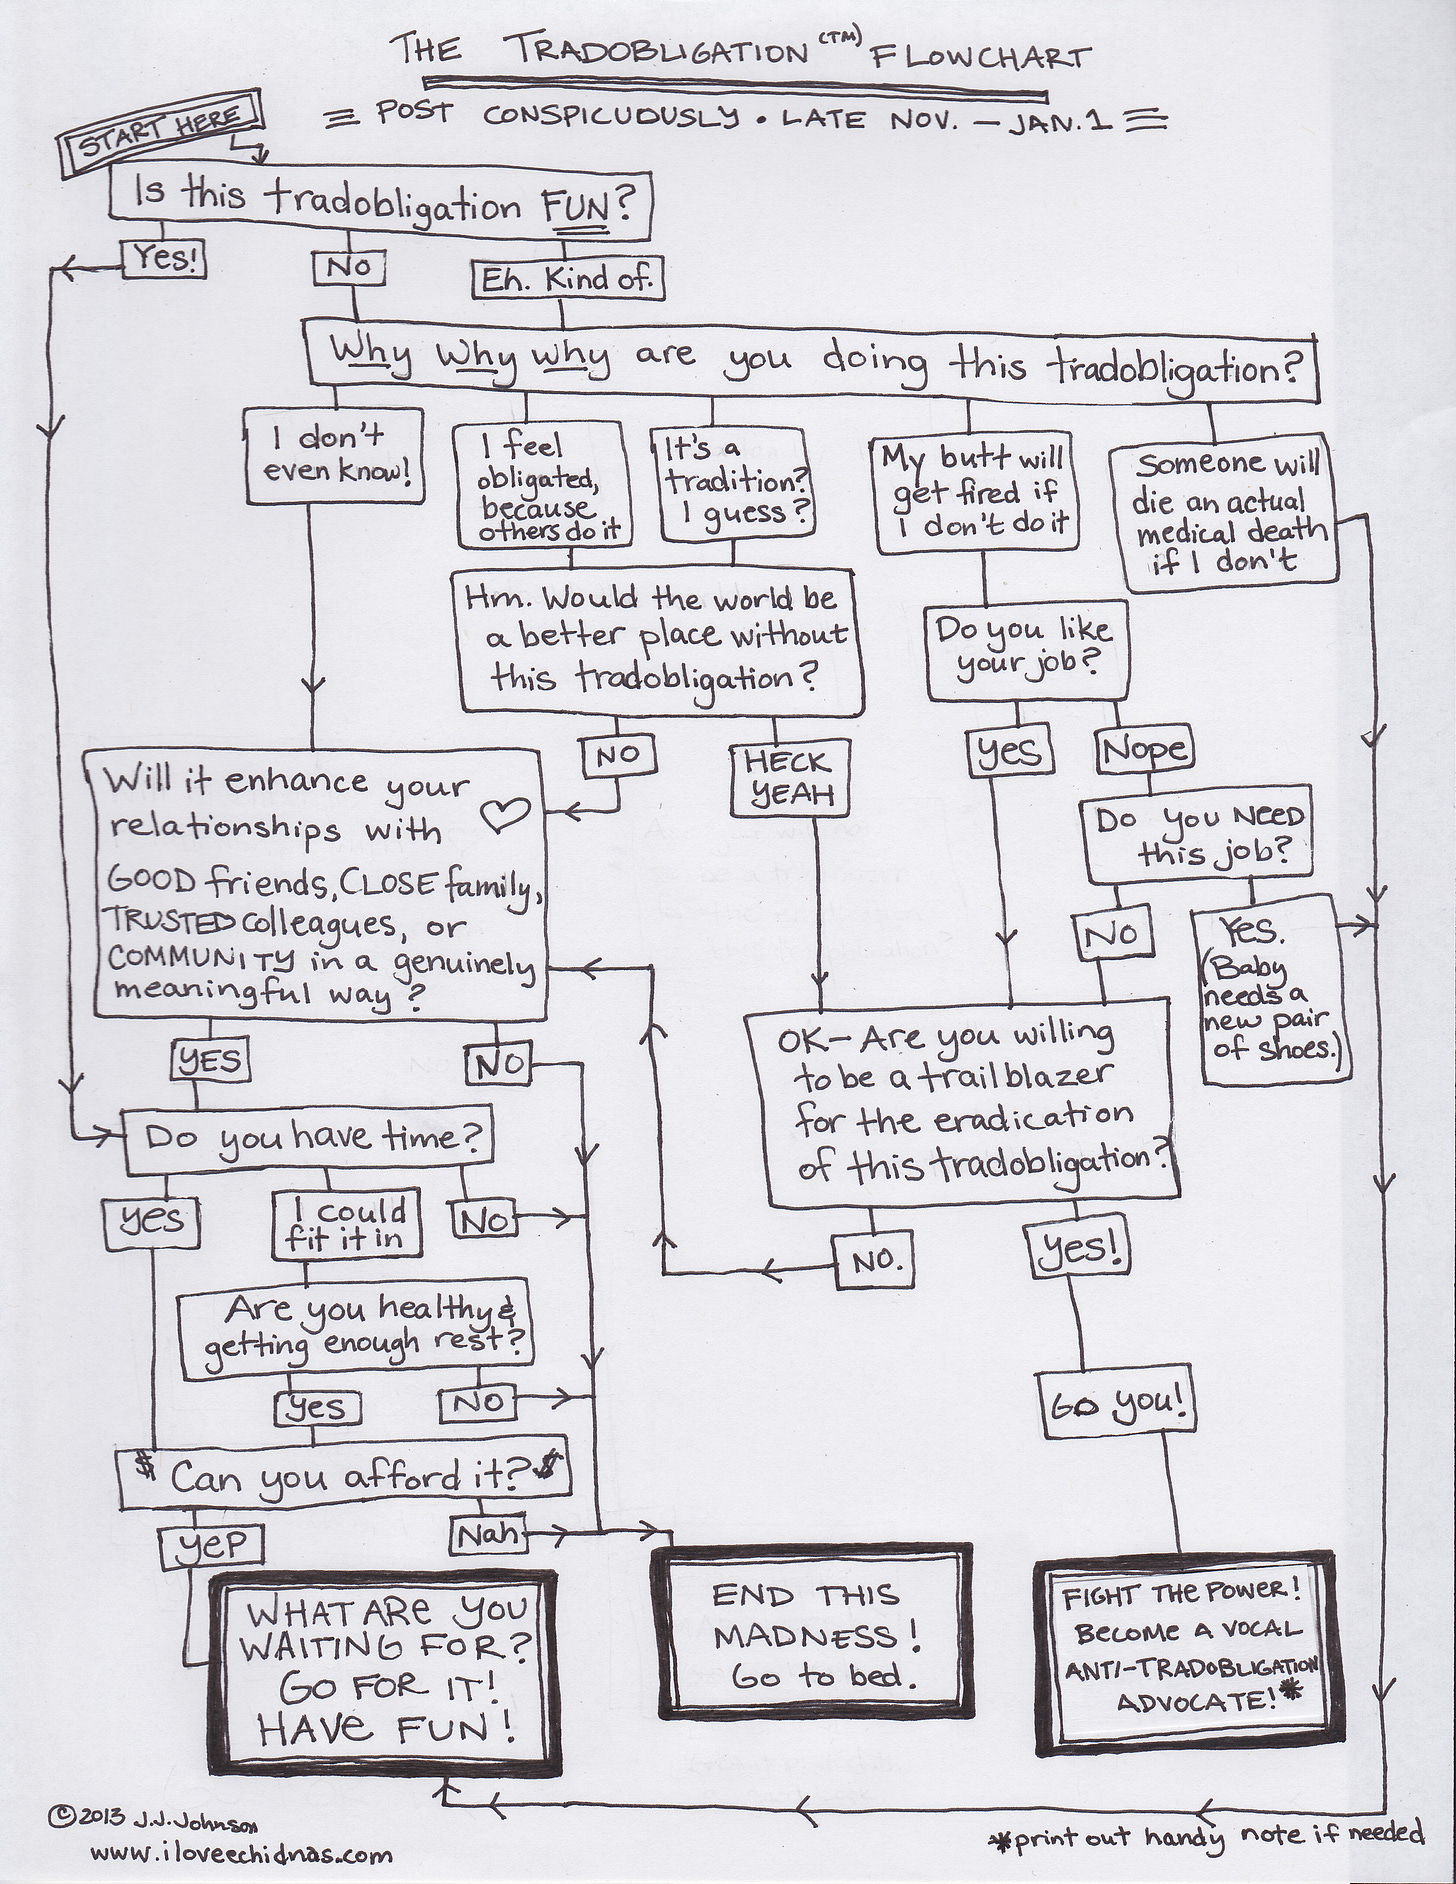 THE TRADOBLIGATION (TM) FLOWCHART
POST CONSPICUOUSLY • LATE NOV. — JAN. 1
START HERE
Is this tradobligation FUN?
Yes!
No
Eh. Kind of.
Why Why why are you doing this tradobligation?
I don't
even know!
I feel
obligated,
because
others do it
It's a
tradition?
I guess?
My butt will
get fired if
I don't do it
Someone will
die an actual
medical death
if I don't
Hm. Would the world be
a better place without
this tradobligation?
Do you like
your job?
NO
HECK
YEAH
yes
Nope
Will it enhance your
relationships with
GOOD friends, CLOSE family,
TRUSTED colleagues, or
COMMUNITY in a genuinely
meaningful way?
Do you NEED
this job?
NO
Yes.
(Baby
needs a
new pair
of shoes.)
YES
NO
OK— Are you willing
to be a trailblazer
for the eradication
of this tradobligation?
Do you have time?
yes
I could
fit it in
No
NO.
Yes!
Are you healthy &
getting enough rest?
yes
NO
Go you!
$ Can you afford it? $
yeP
Nah
WHAT ARE YOU
WAITING FOR?
GO FOR IT!
HAVE FUN!
END THIS
MADNESS!
Go to bed.
FIGHT THE POWER!
BECOME A VOCAL
ANTI-TRADOBLIGATION
ADVOCATE!*
© 2013 J.J. Johnson
www.iloveechidnas.com
*print out handy note if needed